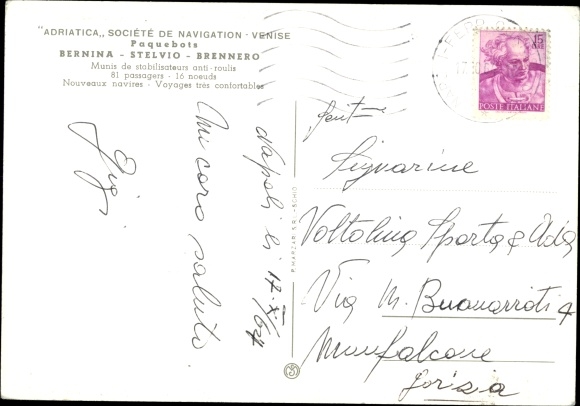 "ADRIATICA„ SOCIÉTÉ DE NAVIGATION - VENISE
Paquebots
BERNINA - STELVIO - BRENNERO
Munis de stabilisateurs anti-roulis
81 passagers - 16 noeuds
Nouveaux navires - Voyages très confortables
Napoli li 17.X/64
Un caro saluto
Gigi
P. MARZARI S.R. - SCHIO
15
POSTE ITALIANE
Gent.
Signorine
Voltolina Sparta e Ada
Via M. Buonarroti 4
Monfalcone
Gorizia